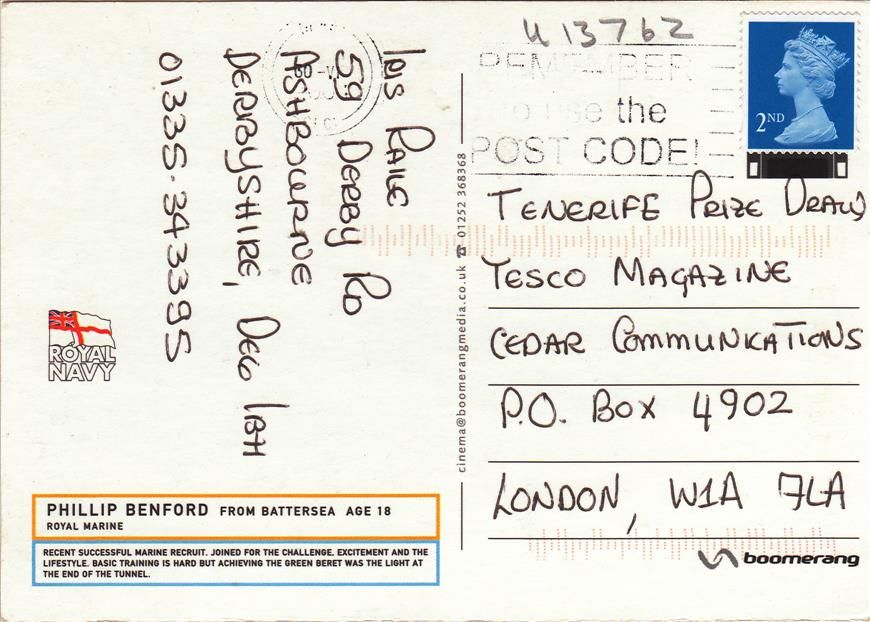 U 13762
REMEMBER
to use the
POST CODE!
2ND
TENERIFE PRIZE DRAW
TESCO MAGAZINE
CEDAR COMMUNICATIONS
P.O. BOX 4902
LONDON, W1A 7LA
boomerang
cinema@boomerangmedia.co.uk ☎ 01252 368368
59 DERBY RD
ASHBOURNE
DERBYSHIRE, DE6 1BH
01335-343395
ROYAL
NAVY
PHILLIP BENFORD FROM BATTERSEA AGE 18
ROYAL MARINE
RECENT SUCCESSFUL MARINE RECRUIT. JOINED FOR THE CHALLENGE. EXCITEMENT AND THE
LIFESTYLE. BASIC TRAINING IS HARD BUT ACHIEVING THE GREEN BERET WAS THE LIGHT AT
THE END OF THE TUNNEL.